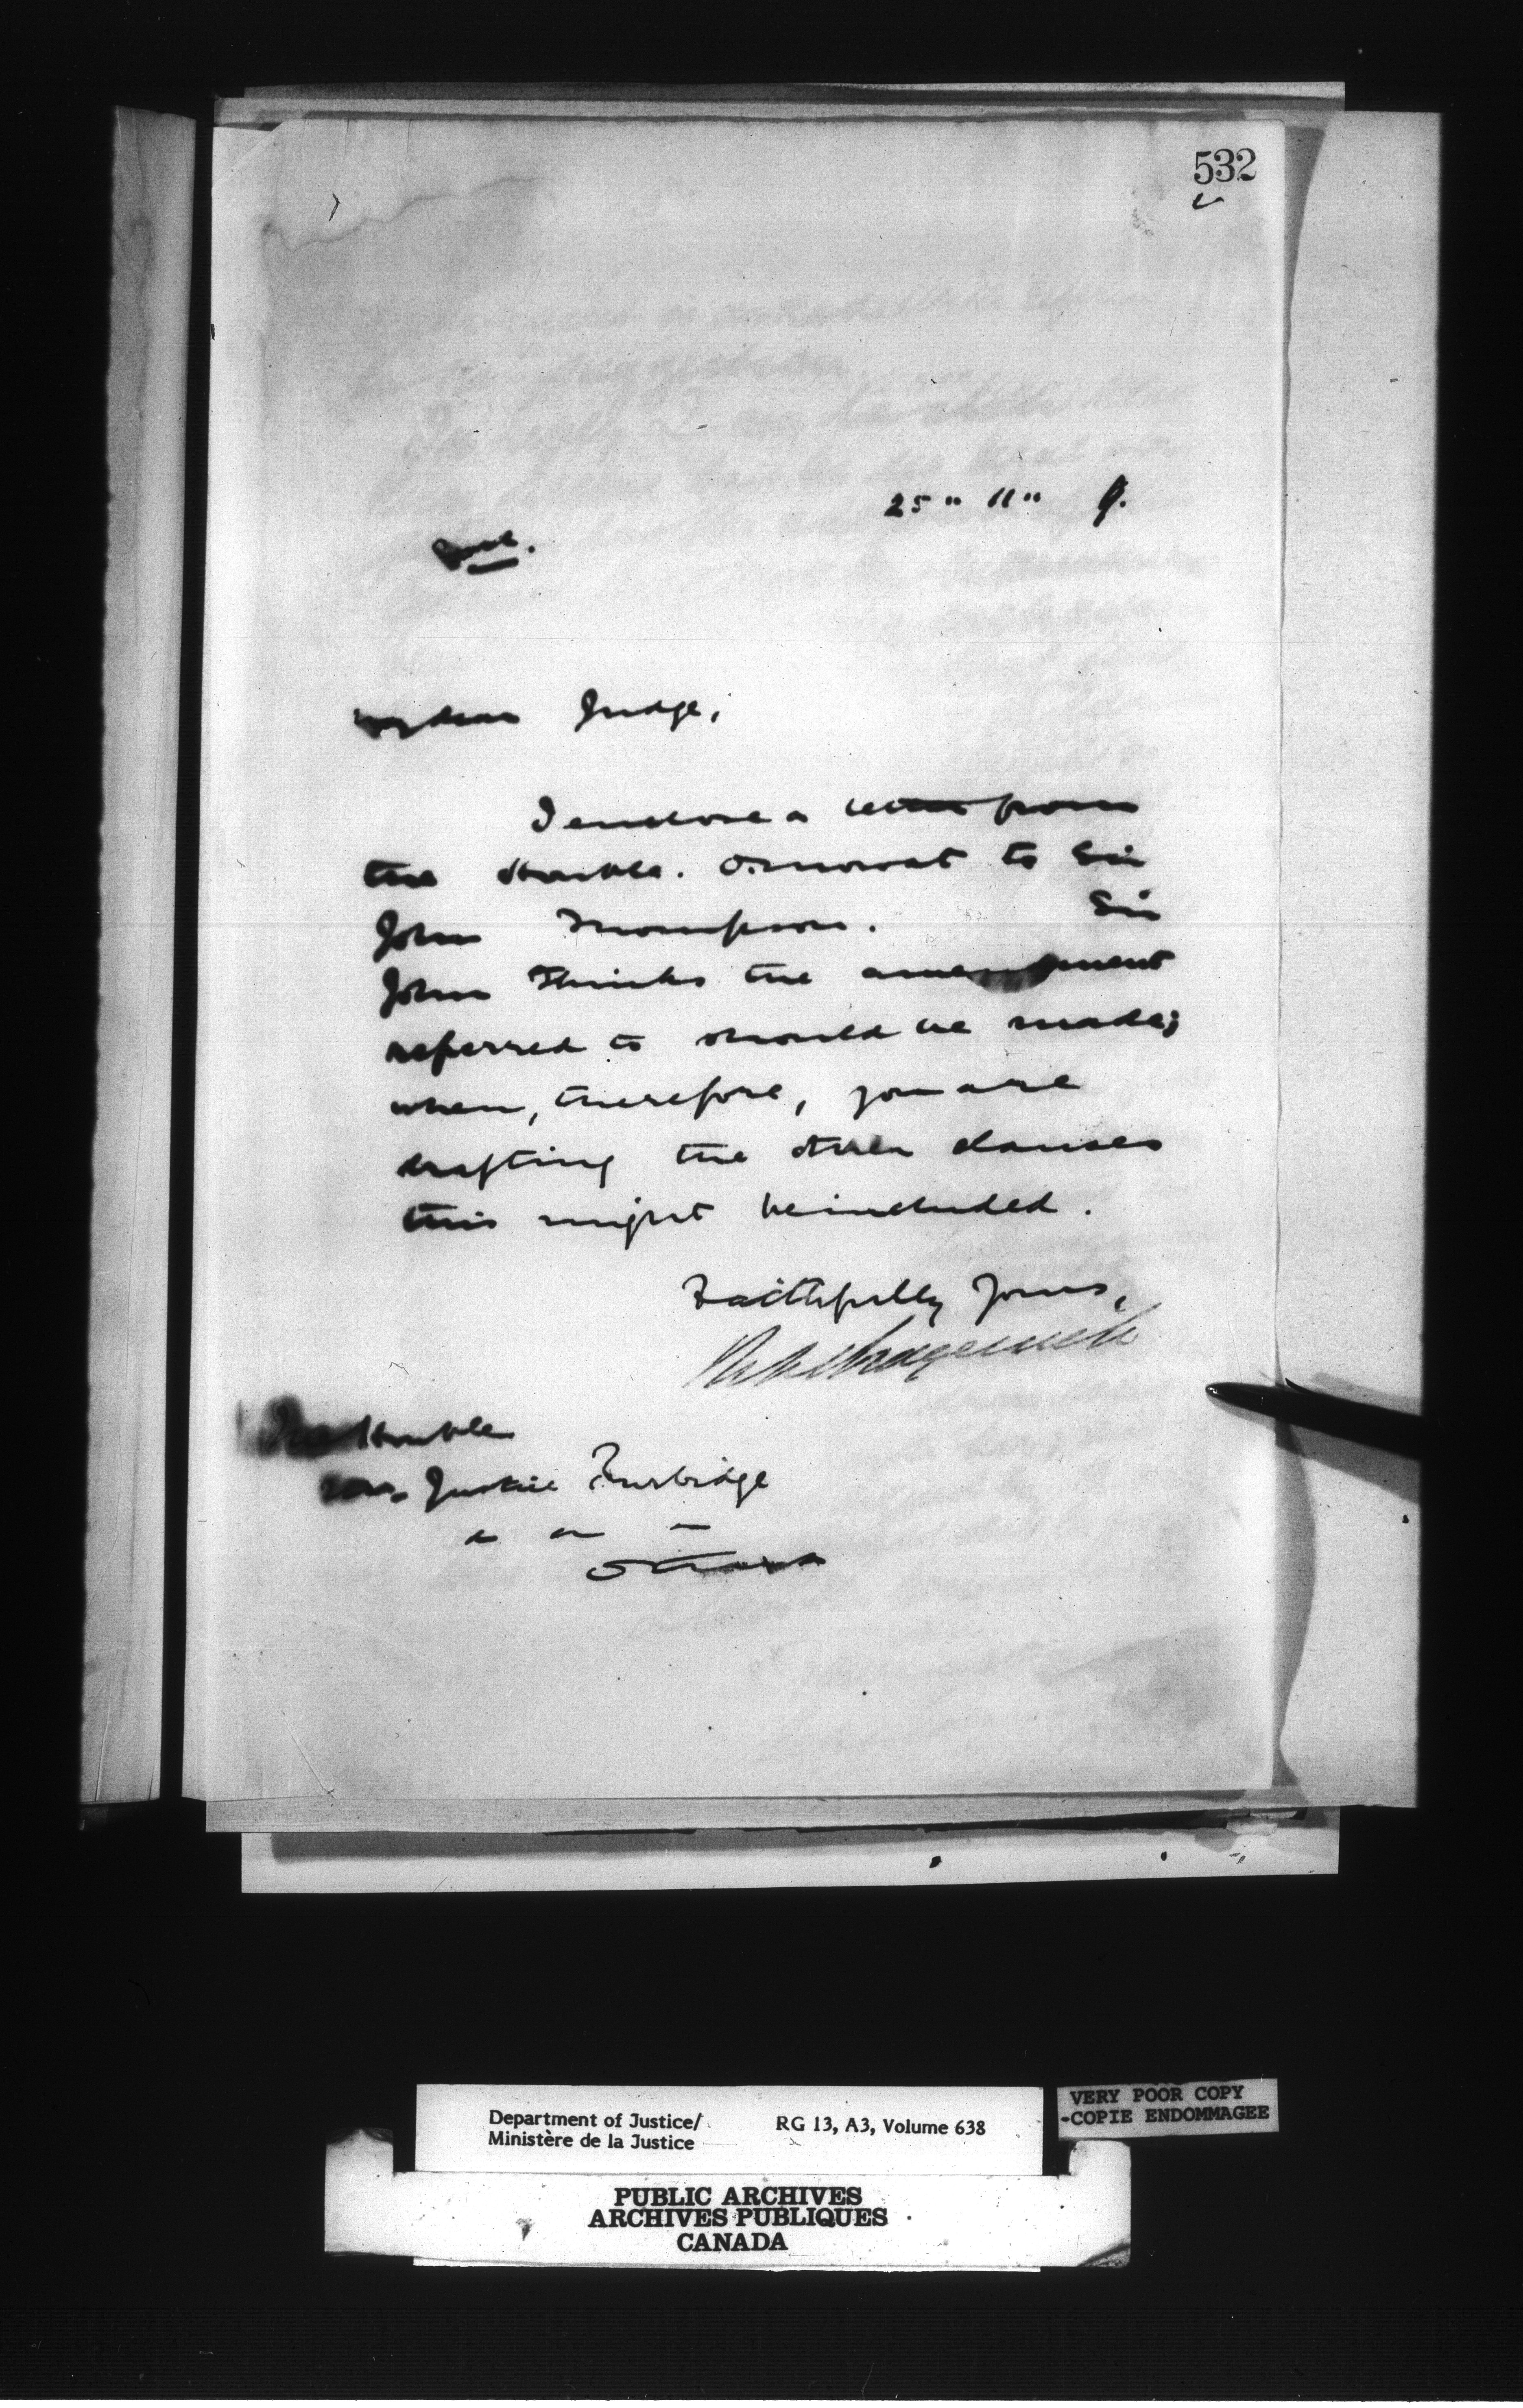 532
25 " 11 "
Encl.
My dear Judge,
I enclose a letter from
the Honble. O. Mowat to Sir
John Thompson. Sir
John thinks the amendment
referred to should be made;
when, therefore, you are
drafting the other clauses
this might be included.
Faithfully yours,
The Honble
Mr. Justice Burbidge
Ottawa
Department of Justice/ RG 13, A3, Volume 638
Ministère de la Justice
VERY POOR COPY
-COPIE ENDOMMAGEE
PUBLIC ARCHIVES
ARCHIVES PUBLIQUES
CANADA